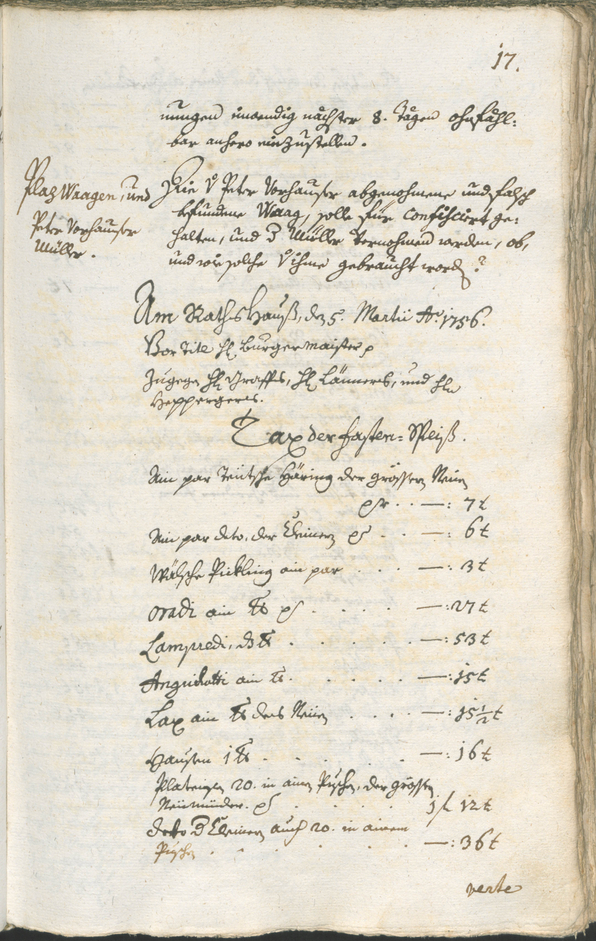 17.
nungen inwendig nächster 8. Tägen ohnfähl-
bar anhero einzustellen.
Plaz Waagen, und
Peter Vorhauser
Müller.
Die v Peter Vorhauser abgenohmene und falsch
befundene Waag, solle für confiscirt ge-
halten, und d Müller vernohmen werden, ob,
und wie solche v ihme gebraucht word?
Am Raths Hauß, den 5. Martii Ao. 1756.
Vor Titl H. burgermaister p
Zugegen H. Graffs, H. Länners, und H.
Heppergers.
Tax der fasten-Speiß.
Ain par Teütsche Häring der grossen Neuen
pr. . . —: 7 t
Ain par deto, der kleinern pr . . —: 6 t
Wälsche Pickling ain par . . . —: 3 t
oradi ain ℔ pr . . . . —: 27 t
Lampredi, d ℔ . . . . . —: 53 t
Anguilotti ain ℔. . . . . . —: 15 t
Lax ain ℔ des Neüen . . . . —: 15½ t
Hausen 1 ℔ . . . . . . —: 16 t
Plateisen 20. in ainen Puschen, der grossen
Neinmünder. pr . . . . 1 fl 12 t
deto d kleinern auch 20. in ainem
Puschen . . . . . . —: 36 t
verte